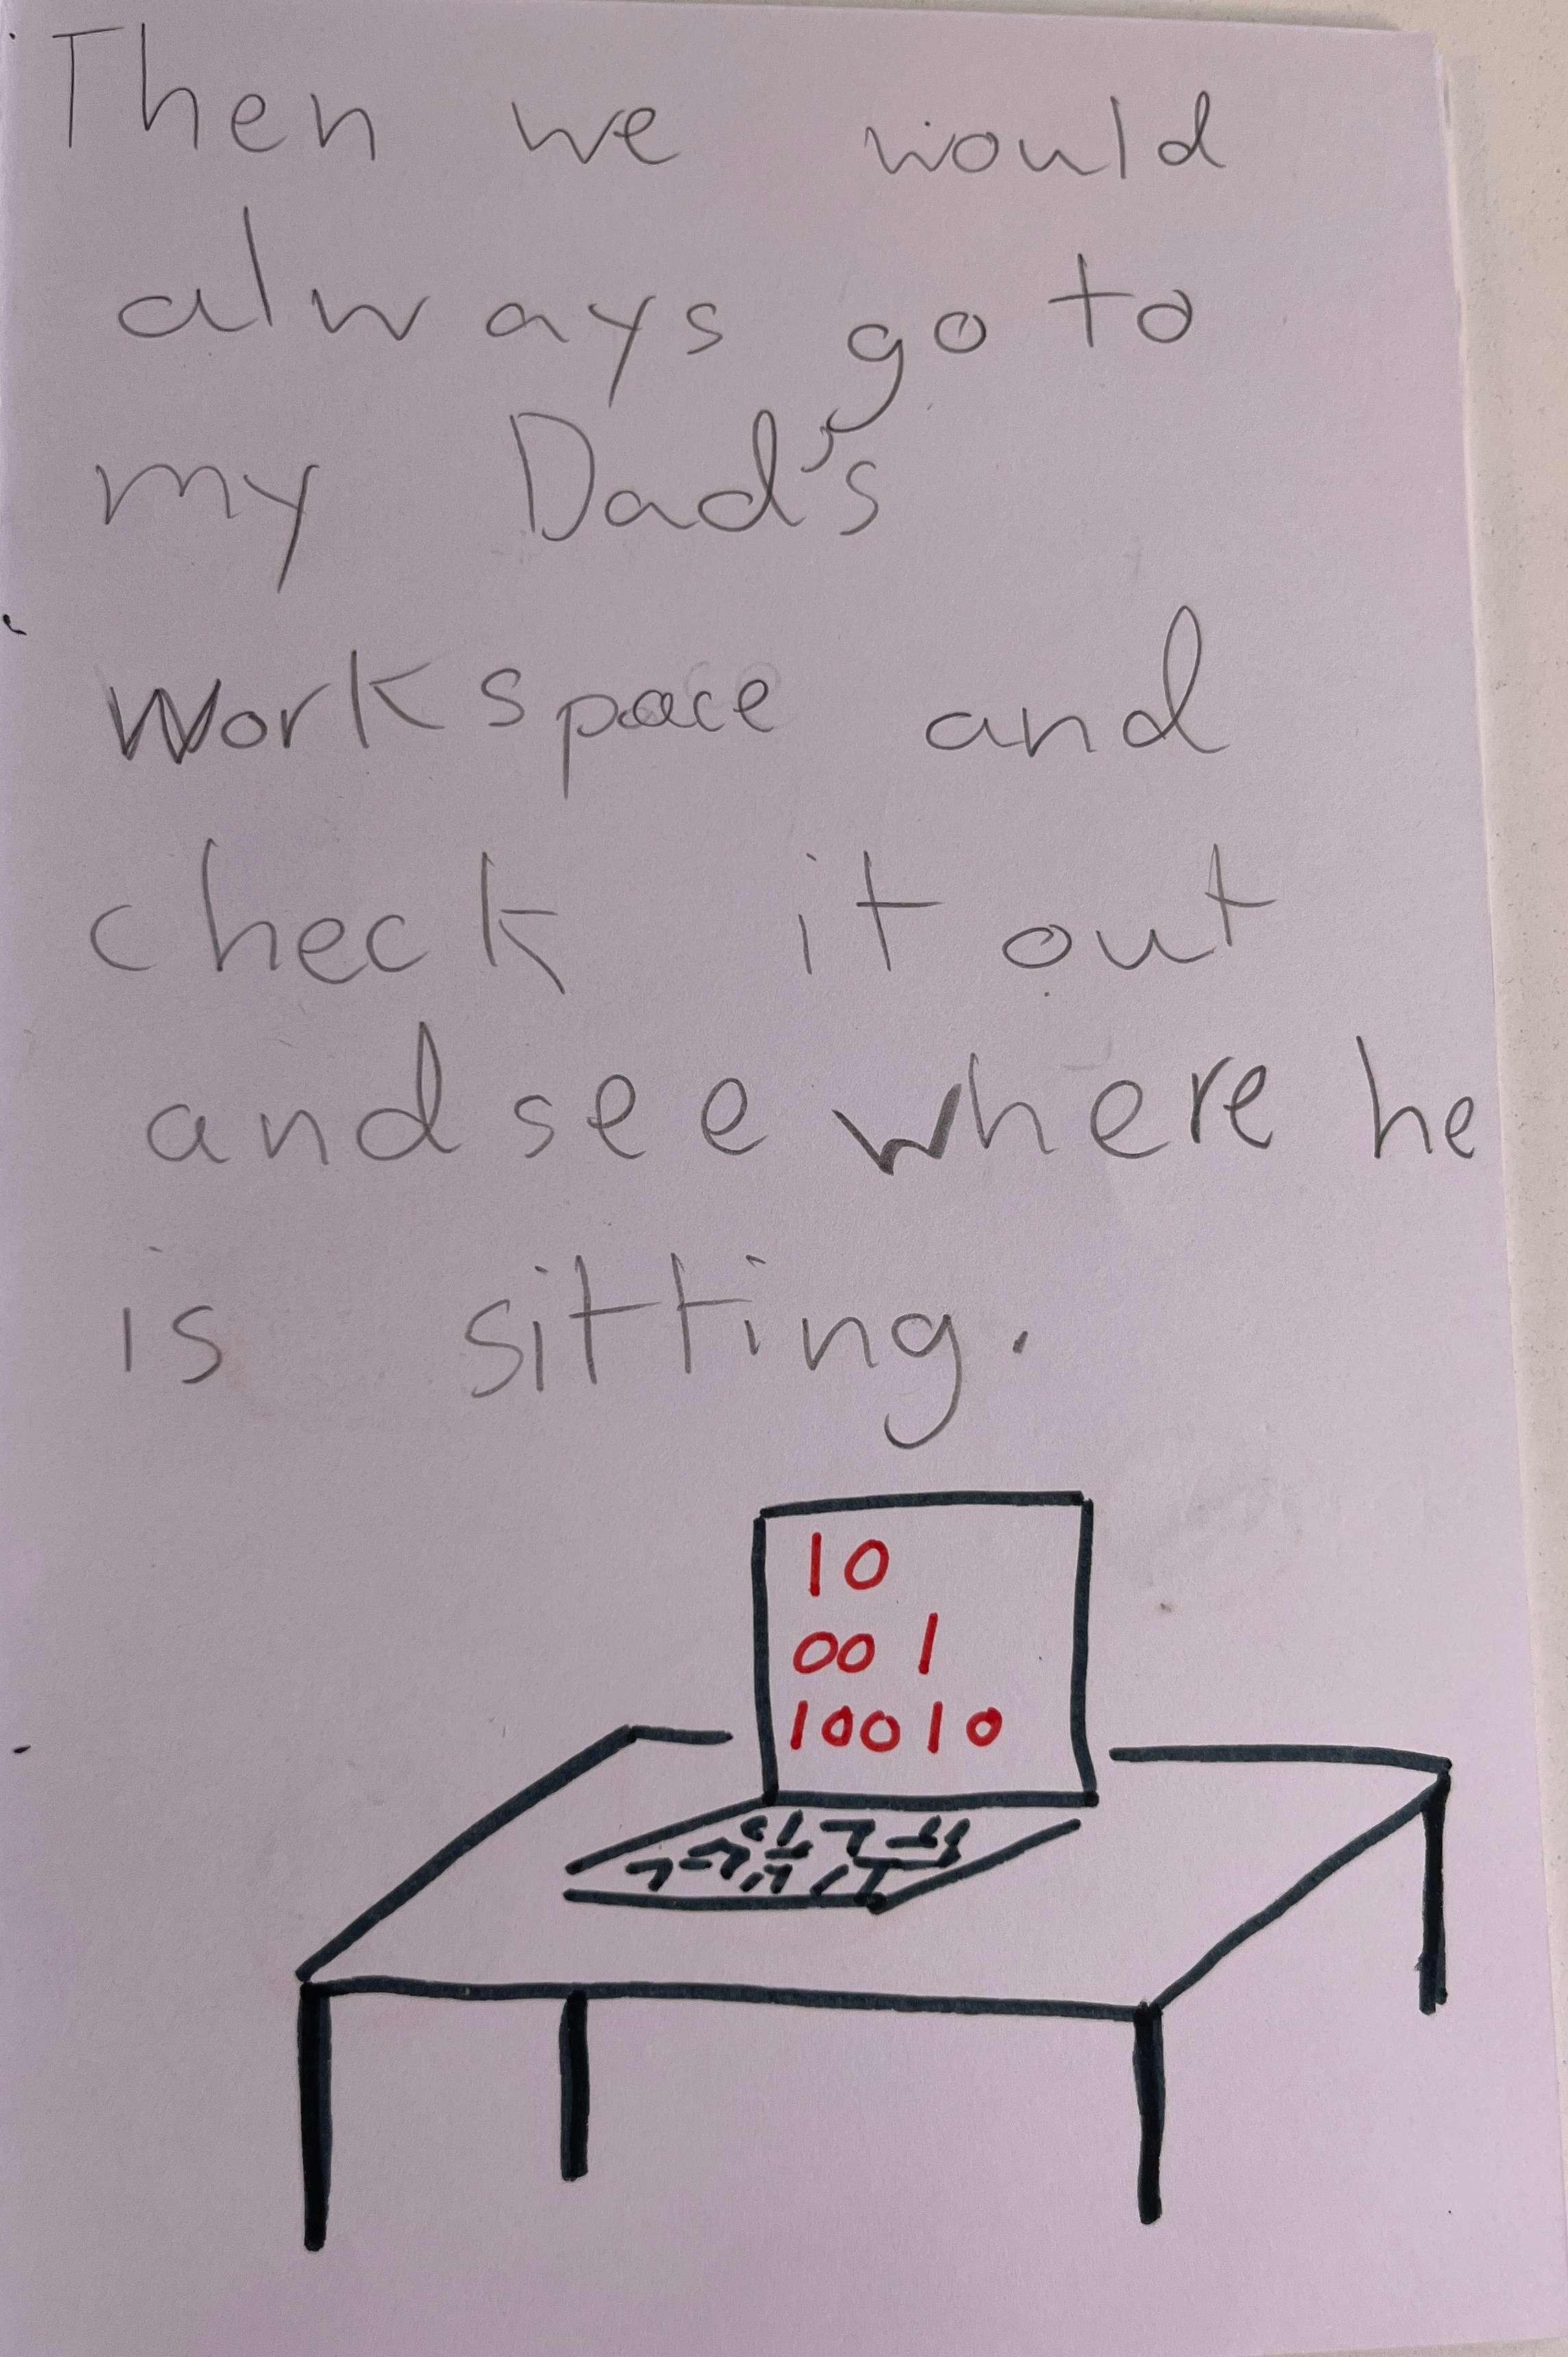 Then we would
always go to
my Dad's
workspace and
check it out
and see where he
is sitting.
10
00 1
10010